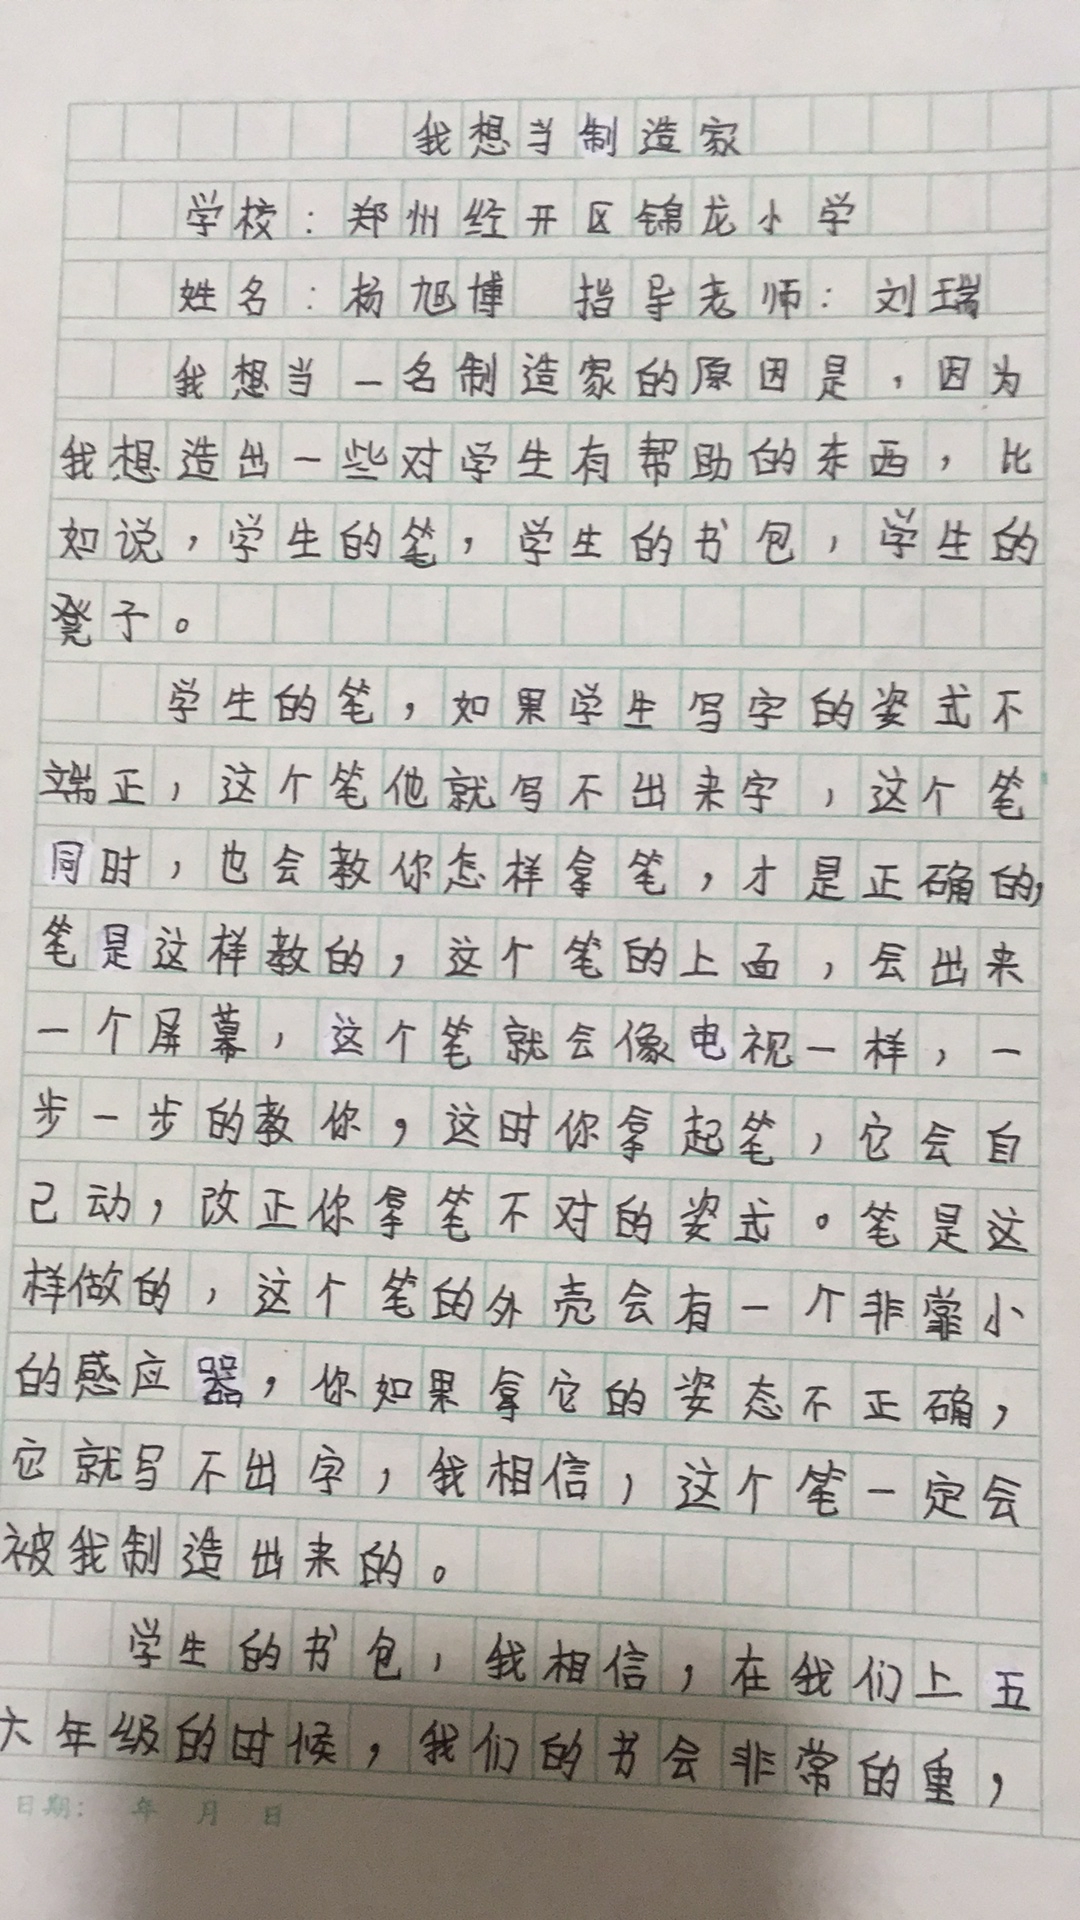 我想当制造家
学校：郑州经开区锦龙小学
姓名：杨旭博 指导老师：刘瑞
我想当一名制造家的原因是，因为
我想造出一些对学生有帮助的东西，比
如说，学生的笔，学生的书包，学生的
凳子。
学生的笔，如果学生写字的姿式不
端正，这个笔他就写不出来字，这个笔
同时，也会教你怎样拿笔，才是正确的，
笔是这样教的，这个笔的上面，会出来
一个屏幕，这个笔就会像电视一样，一
步一步的教你，这时你拿起笔，它会自
己动，改正你拿笔不对的姿式。笔是这
样做的，这个笔的外壳会有一个非常小
的感应器，你如果拿它的姿态不正确，
它就写不出字，我相信，这个笔一定会
被我制造出来的。
学生的书包，我相信，在我们上五
六年级的时候，我们的书会非常的重，
日期： 年 月 日